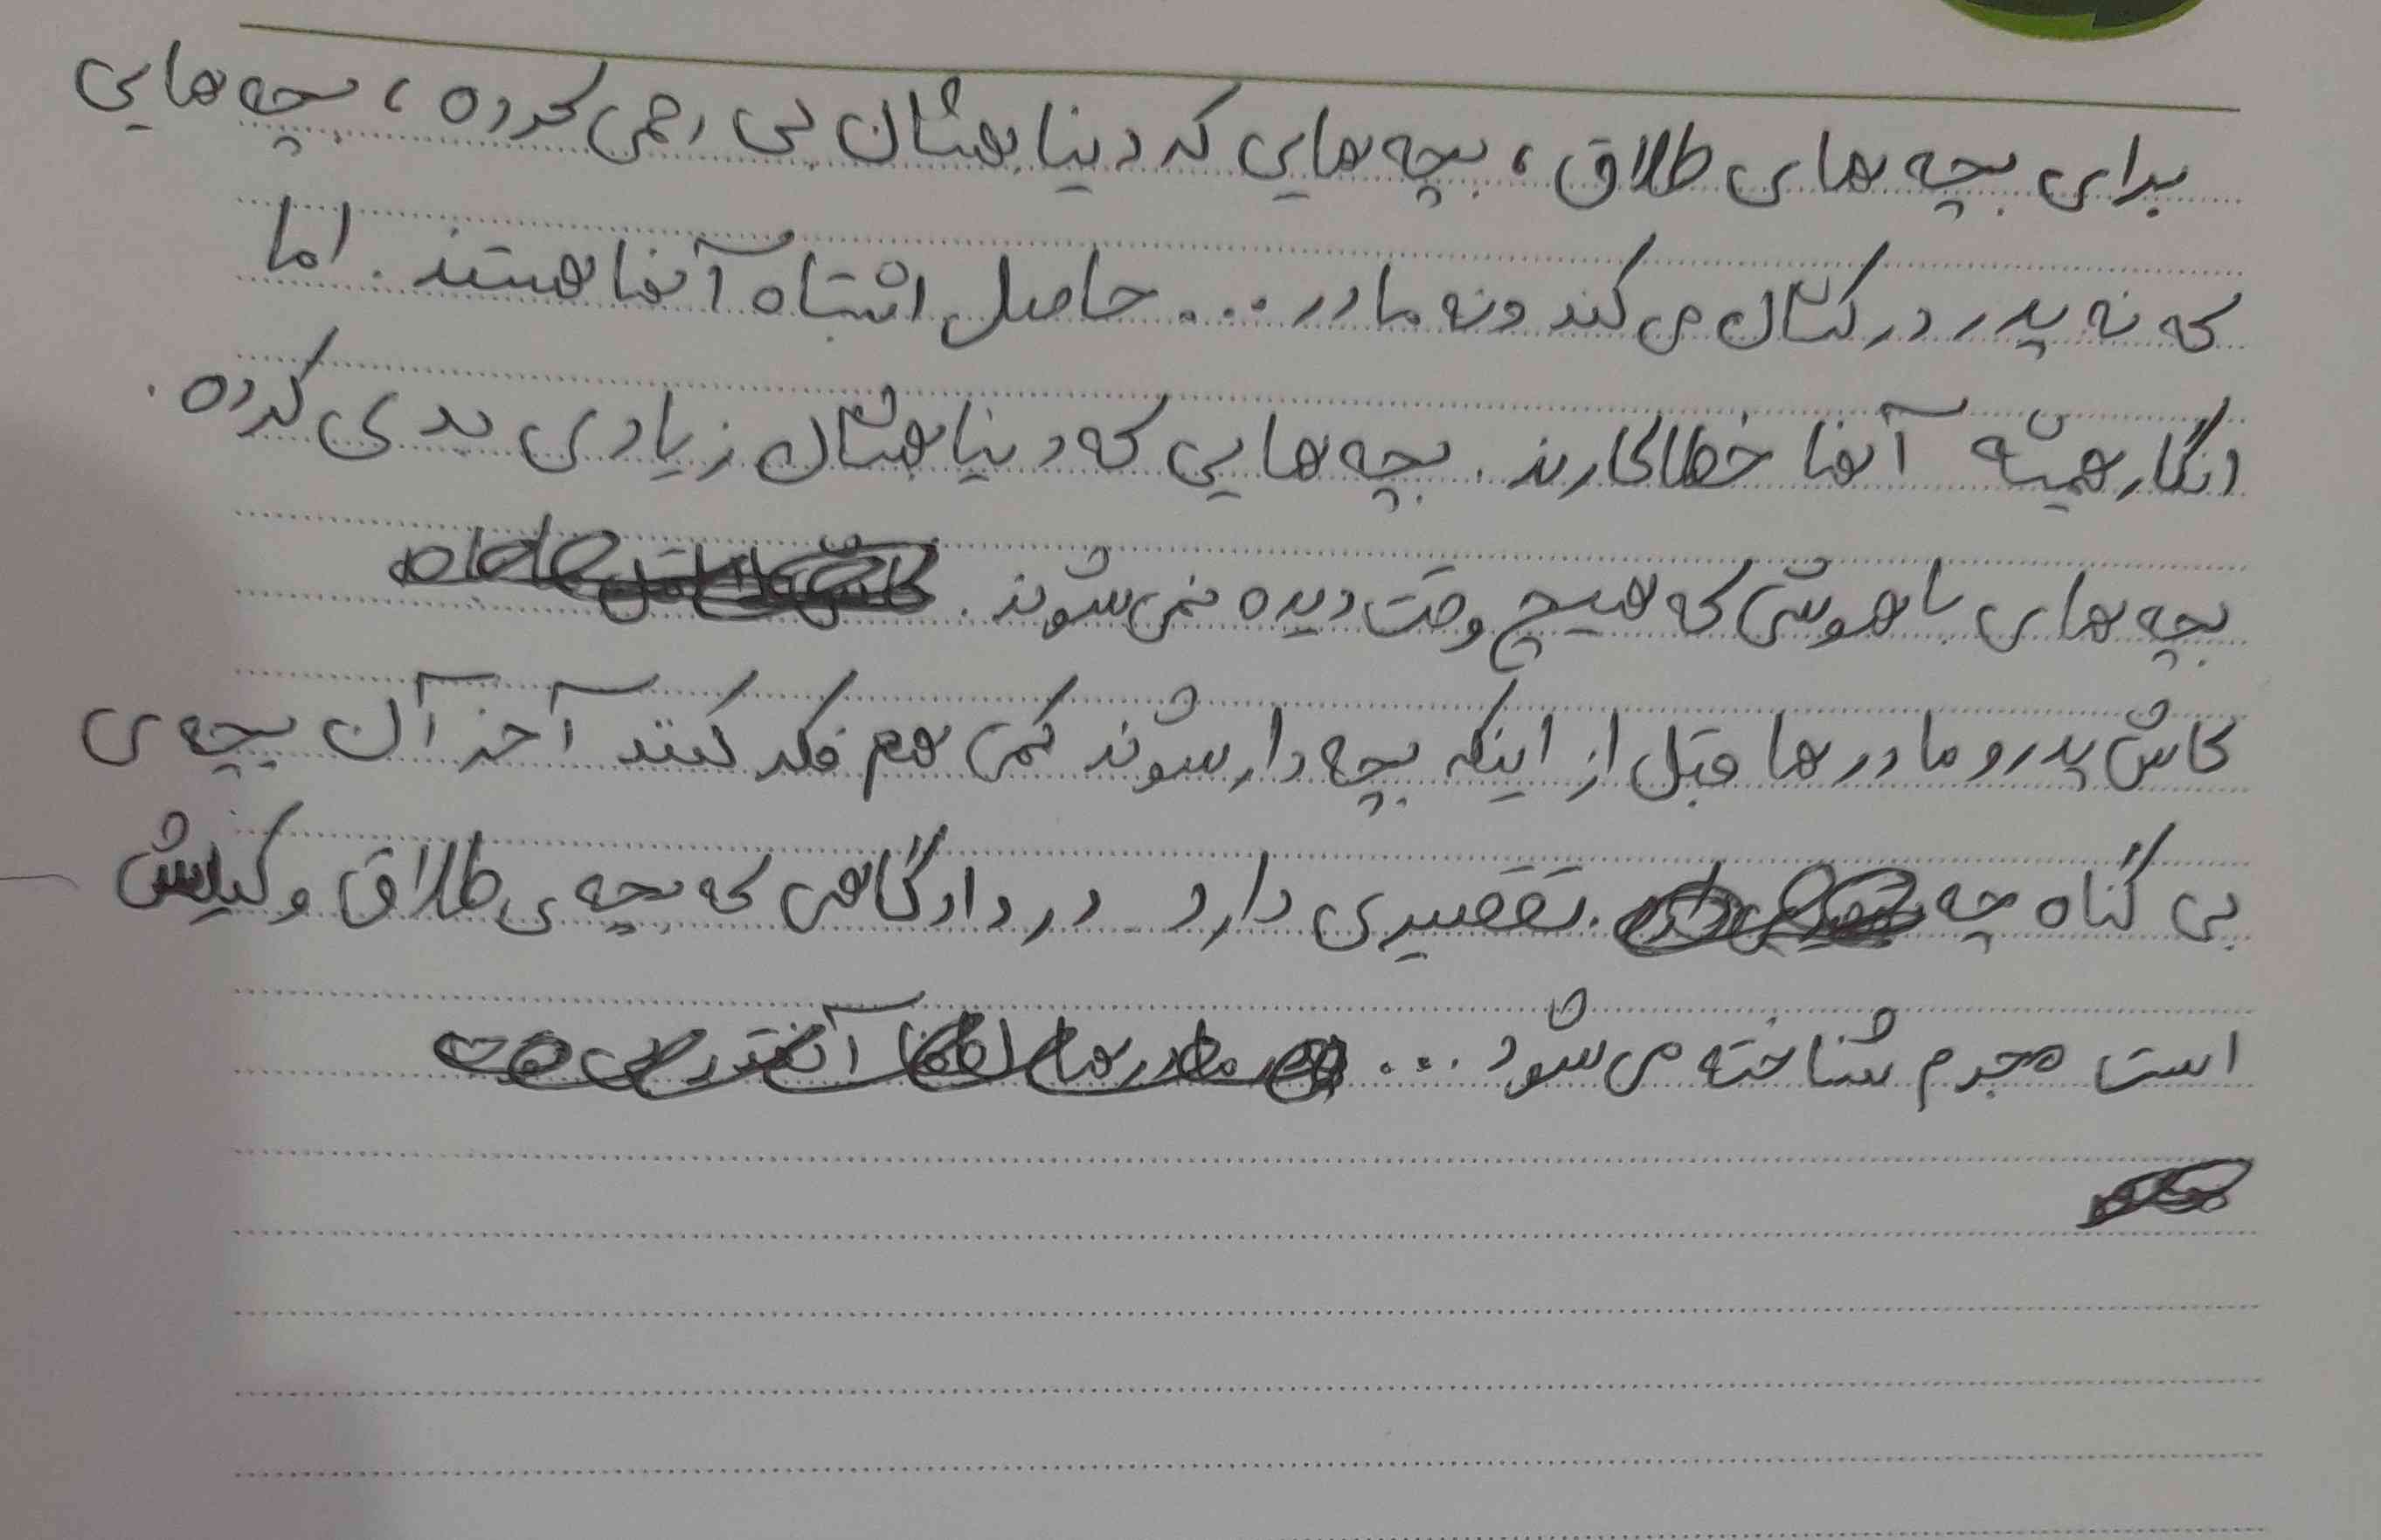 برای بچه های طلاق، بچه هایی که دنیا بهشان بی رحمی کرده، بچه هایی
که نه پدر درکشان می کند و نه مادر... حاصل اشتباه آنها هستند. اما
انگار همیشه آنها خطاکارند. بچه هایی که دنیا بهشان زیادی بدی کرده.
بچه های باهوشی که هیچ وقت دیده نمی شوند.
کاش پدر و مادر ها قبل از اینکه بچه دار شوند کمی هم فکر کنند آخر آن بچه ی
بی گناه چه تقصیری دارد در دادگاهی که بچه ی طلاق وکیلش
است مجرم شناخته می شود...